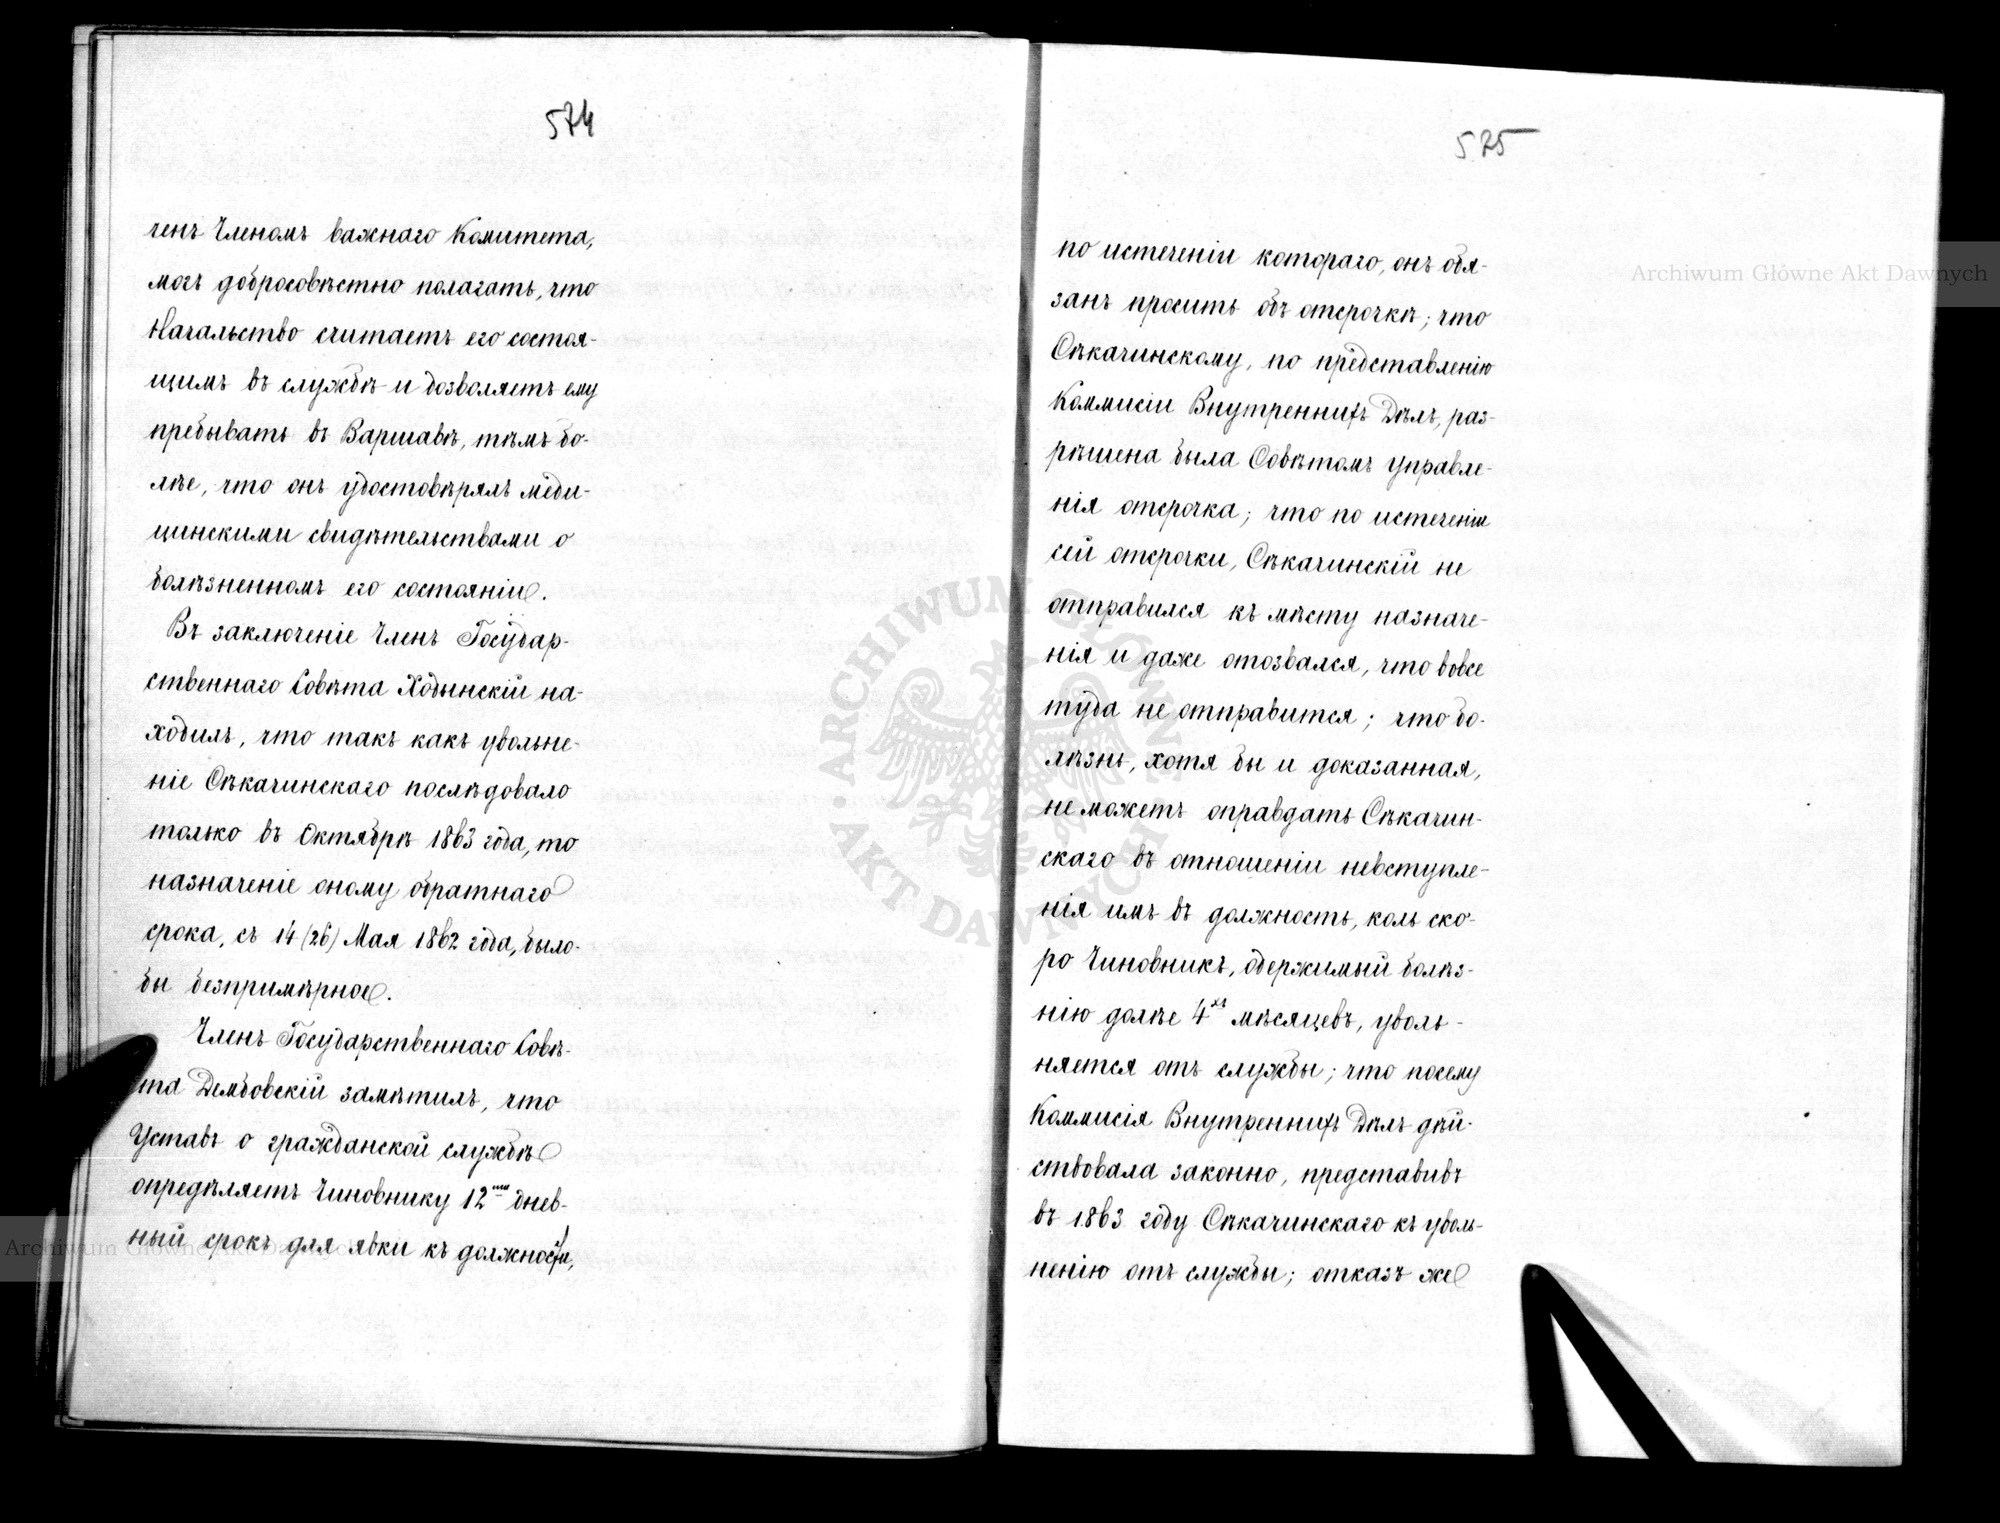 574
ченъ Членомъ важнаго Комитета,
могъ добросовѣстно полагать, что
Начальство считаетъ его состоя-
щимъ въ службѣ и дозволяетъ ему
пребывать въ Варшавѣ, тѣмъ бо-
лѣе, что онъ удостовѣрялъ меди-
цинскими свидѣтельствами о
болѣзненномъ его состояніи.
Въ заключеніе Членъ Государ-
ственнаго Совѣта Ходынскій на-
ходилъ, что такъ какъ увольне-
ніе Сѣкачинскаго послѣдовало
только въ Октябрѣ 1863 года, то
назначеніе оному обратнаго
срока, съ 14 (26) Мая 1862 года, было-
бы безпримѣрное.
Членъ Государственнаго Совѣ-
та Дембовскій замѣтилъ, что
Уставъ о гражданской службѣ
опредѣляетъ Чиновнику 12ти днев-
ный срокъ для явки къ должности,
575
по истеченіи котораго, онъ обя-
занъ просить объ отсрочкѣ; что
Сѣкачинскому, по представленію
Коммисіи Внутреннихъ Дѣлъ, раз-
рѣшена была Совѣтомъ Управле-
нія отсрочка; что по истеченіи
сей отсрочки, Сѣкачинскій не
отправился къ мѣсту назначе-
нія и даже отозвался, что вовсе
туда не отправится; что бо-
лѣзнь, хотя бы и доказанная,
не можетъ оправдать Сѣкачин-
скаго въ отношеніи невступле-
нія имъ въ должность, коль ско-
ро Чиновникъ, одержимый болѣз-
нію долѣе 4хъ мѣсяцевъ, уволь-
няется отъ службы; что посему
Коммисія Внутреннихъ Дѣлъ дѣй-
ствовала законно, представивъ
въ 1863 году Сѣкачинскаго къ уволь-
ненію отъ службы; отказъ же
Archiwum Główne Akt Dawnych
ARCHIWUM GŁÓWNE AKT DAWNYCH
Archiwum Główne Akt Dawnych